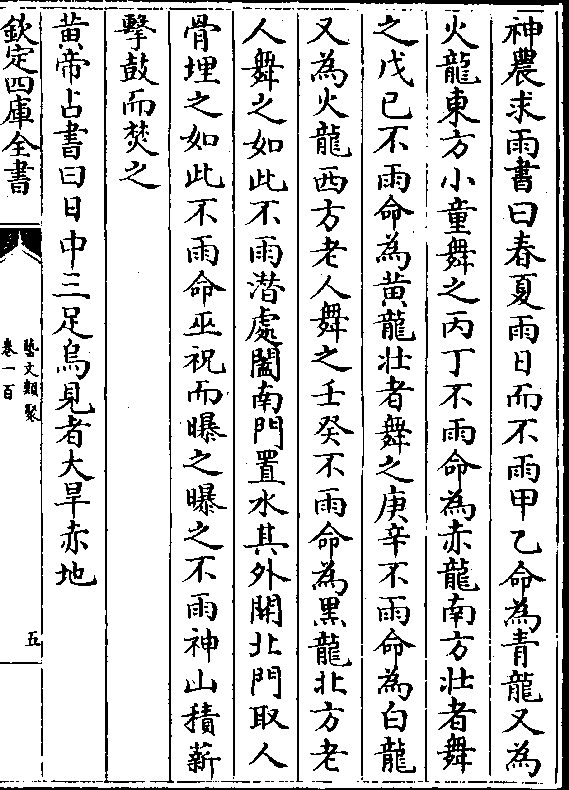 神農求雨書曰春夏雨日而不雨甲乙命為青龍又為
火龍東方小童舞之丙丁不雨命為赤龍南方壯者舞
之戊己不雨命為黄龍壯者舞之庚辛不雨命為白龍
又為火龍西方老人舞之壬癸不雨命為黑龍北方老
人舞之如此不雨潜處闔南門置水其外開北門取人
骨埋之如此不雨命巫祝而曝之曝之不雨神山積薪
擊鼓而焚之
黄帝占書曰日中三足烏見者大旱赤地
欽定四庫全書
藝文類聚
卷一百
五